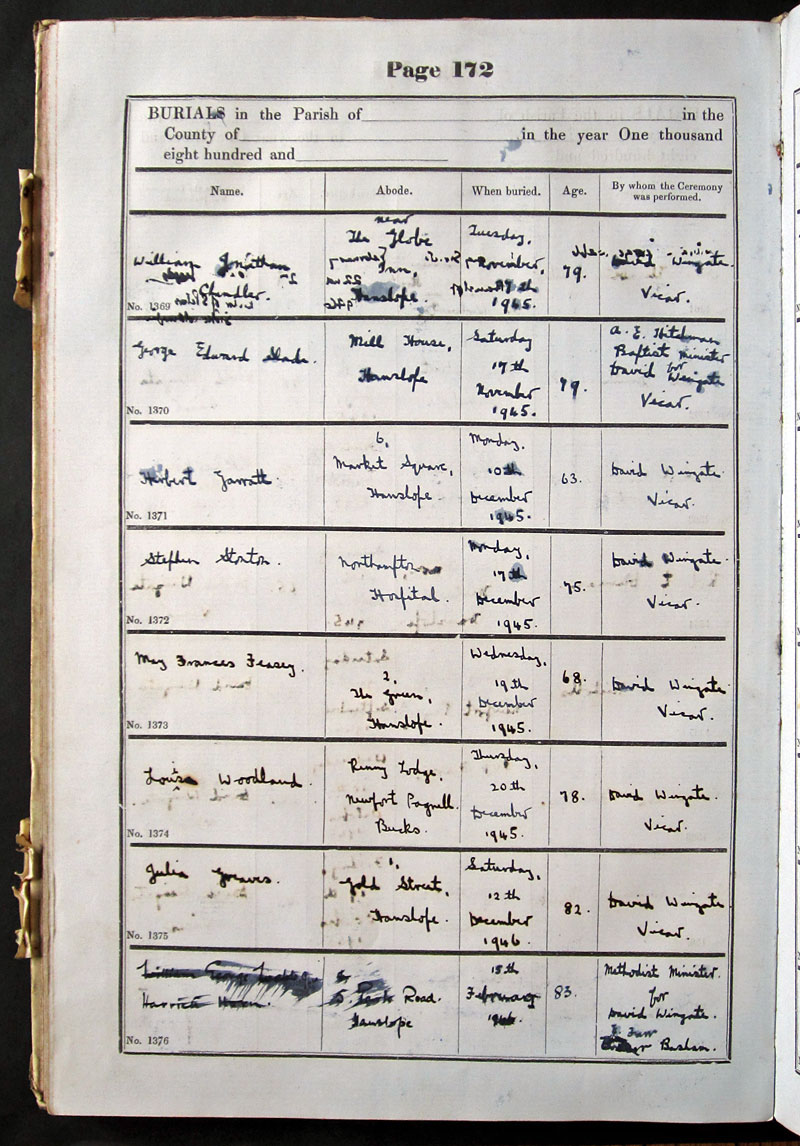 Page 172
BURIALS in the Parish of in the
County of in the year One thousand
eight hundred and
Name. Abode. When buried. Age. By whom the Ceremony was performed.
William Jonathan
Chandler.
No. 1369
near
The Globe
Inn,
Hanslope.
Tuesday,
November,
1945.
79.
David Wingate.
Vicar.
George Edward Slade.
No. 1370
Mill House,
Hanslope
Saturday
17th
November
1945.
79.
A. E. Hitchman
Baptist Minister
for
David Wingate
Vicar.
Herbert Garratt.
No. 1371
6,
Market Square,
Hanslope
Monday,
10th
December
1945.
63.
David Wingate.
Vicar.
Stephen Stonton.
No. 1372
Northampton
Hospital.
Monday,
17th
December
1945.
75.
David Wingate.
Vicar.
May Frances Feasey.
No. 1373
2,
The Green,
Hanslope.
Wednesday,
19th
December
1945.
68.
David Wingate
Vicar.
Louisa Woodland.
No. 1374
Renny Lodge,
Newport Pagnell.
Bucks.
Thursday,
20th
December
1945.
78.
David Wingate.
Vicar.
Julia Greaves.
No. 1375
1,
Gold Street,
Hanslope.
Saturday,
12th
December
1946
82.
David Wingate.
Vicar.
George
Harriet
No. 1376
Road.
Hanslope
15th
February
83.
Methodist Minister.
for
David Wingate.